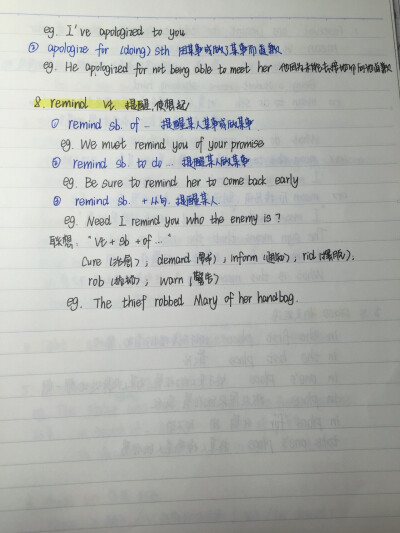 eg. I've apologized to you
② apologize for (doing) sth 因某事或做了某事而道歉
eg. He apologized for not being able to meet her 他因为未能去接她而向她道歉
8. remind vt. 提醒,使想起
① remind sb. of ... 提醒某人某事或做某事
eg. We must remind you of your promise
② remind sb. to do ... 提醒某人做某事
eg. Be sure to remind her to come back early
③ remind sb. + 从句. 提醒某人
eg. Need I remind you who the enemy is?
联想: "vt + sb + of ..."
Cure (治愈); demand (要求); inform (通知); rid (摆脱);
rob (抢劫); warn (警告)
eg. The thief robbed Mary of her handbag.